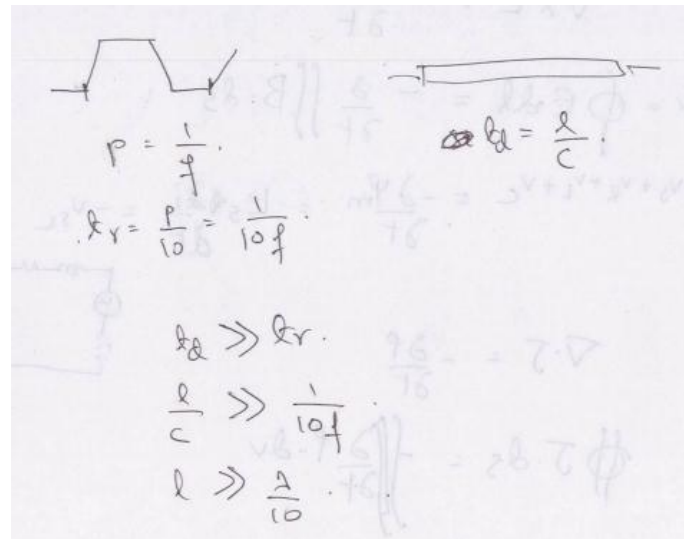 p = 1/f.
t_d = l/c.
t_r = p/10 = 1/10f.
t_d >> t_r.
l/c >> 1/10f.
l >> λ/10.